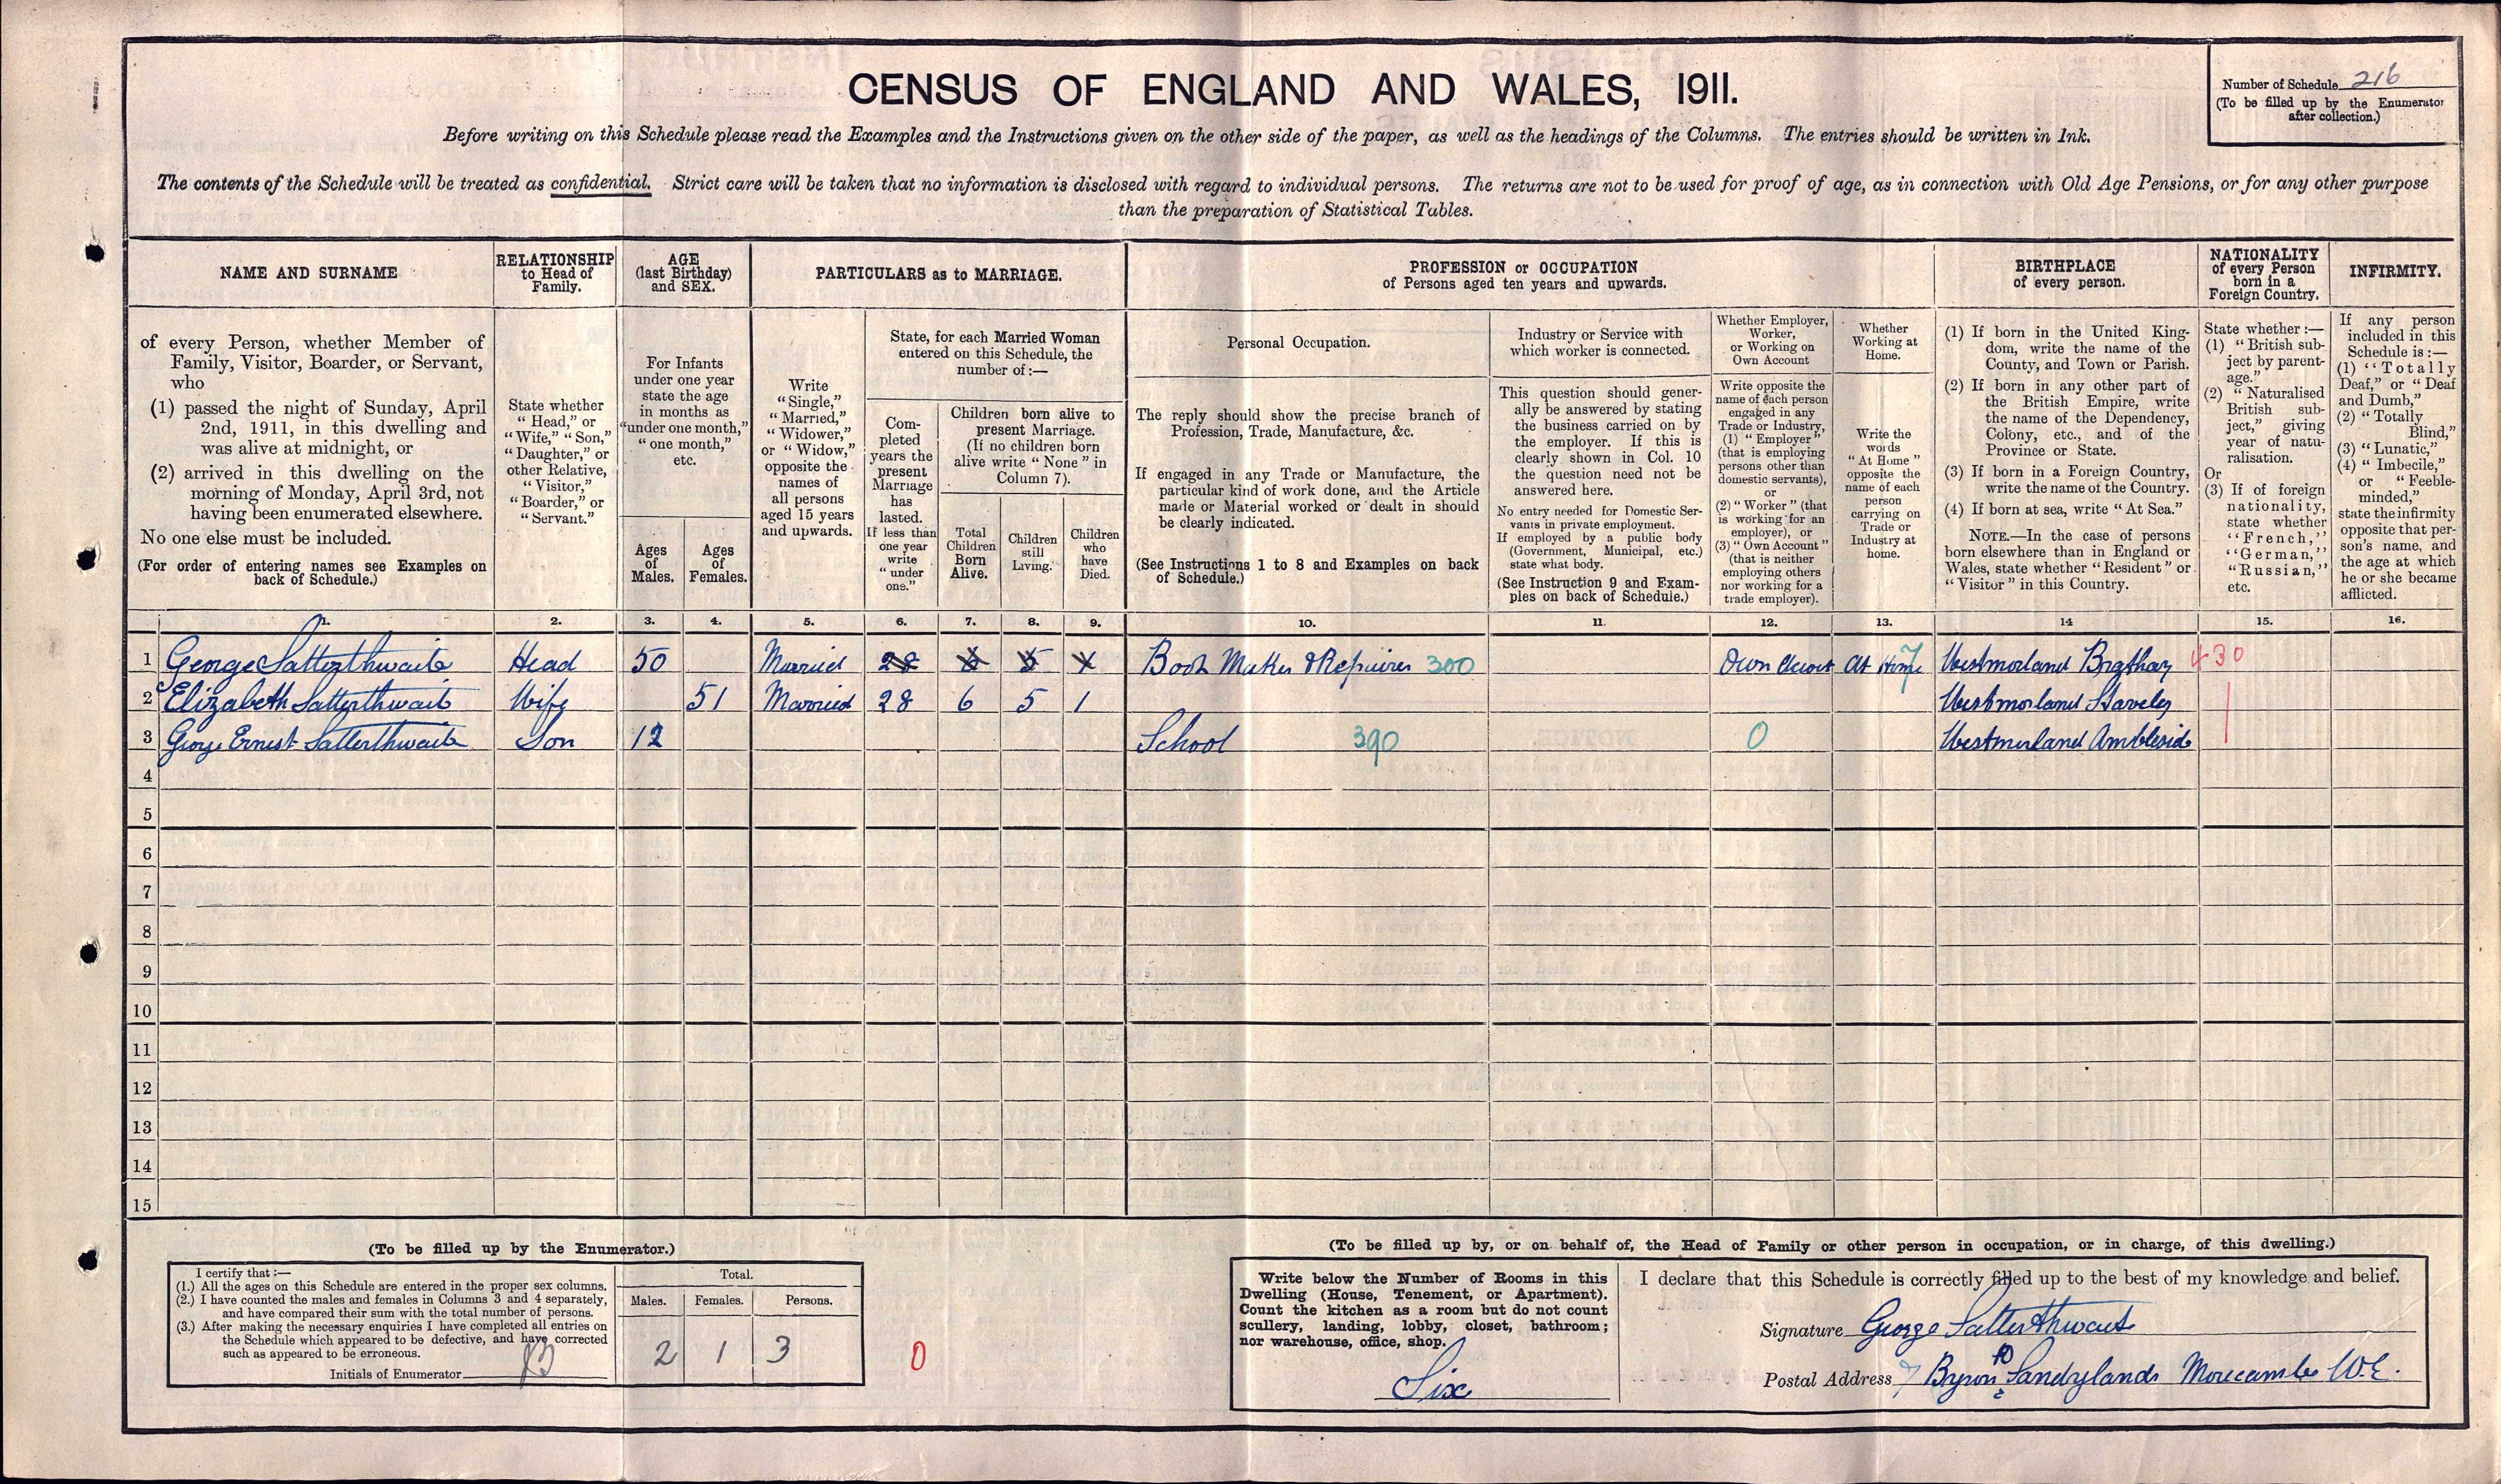 CENSUS OF ENGLAND AND WALES, 1911.
Number of Schedule 216
(To be filled up by the Enumerator
after collection.)
Before writing on this Schedule please read the Examples and the Instructions given on the other side of the paper, as well as the headings of the Columns. The entries should be written in Ink.
The contents of the Schedule will be treated as confidential. Strict care will be taken that no information is disclosed with regard to individual persons. The returns are not to be used for proof of age, as in connection with Old Age Pensions, or for any other purpose
than the preparation of Statistical Tables.
NAME AND SURNAME
of every Person, whether Member of
Family, Visitor, Boarder, or Servant,
who
(1) passed the night of Sunday, April
2nd, 1911, in this dwelling and
was alive at midnight, or
(2) arrived in this dwelling on the
morning of Monday, April 3rd, not
having been enumerated elsewhere.
No one else must be included.
(For order of entering names see Examples on
back of Schedule.)
RELATIONSHIP
to Head of
Family.
State whether
"Head," or
"Wife," "Son,"
"Daughter," or
other Relative,
"Visitor,"
"Boarder," or
"Servant."
AGE
(last Birthday)
and SEX.
For Infants
under one year
state the age
in months as
"under one month,"
"one month,"
etc.
Ages
of
Males.
Ages
of
Females.
PARTICULARS as to MARRIAGE.
Write
"Single,"
"Married,"
"Widower,"
or "Widow,"
opposite the
names of
all persons
aged 15 years
and upwards.
State, for each Married Woman
entered on this Schedule, the
number of:—
Com-
pleted
years the
present
Marriage
has
lasted.
If less than
one year
write
"under
one."
Children born alive to
present Marriage.
(If no children born
alive write "None" in
Column 7).
Total
Children
Born
Alive.
Children
still
Living.
Children
who
have
Died.
PROFESSION or OCCUPATION
of Persons aged ten years and upwards.
Personal Occupation.
The reply should show the precise branch of
Profession, Trade, Manufacture, &c.
If engaged in any Trade or Manufacture, the
particular kind of work done, and the Article
made or Material worked or dealt in should
be clearly indicated.
(See Instructions 1 to 8 and Examples on back
of Schedule.)
Industry or Service with
which worker is connected.
This question should gener-
ally be answered by stating
the business carried on by
the employer. If this is
clearly shown in Col. 10
the question need not be
answered here.
No entry needed for Domestic Ser-
vants in private employment.
If employed by a public body
(Government, Municipal, etc.)
state what body.
(See Instruction 9 and Exam-
ples on back of Schedule.)
Whether Employer,
Worker,
or Working on
Own Account
Write opposite the
name of each person
engaged in any
Trade or Industry,
(1) "Employer"
(that is employing
persons other than
domestic servants),
or
(2) "Worker" (that
is working for an
employer), or
(3) "Own Account"
(that is neither
employing others
nor working for a
trade employer).
Whether
Working at
Home.
Write the
words
"At Home"
opposite the
name of each
person
carrying on
Trade or
Industry at
home.
BIRTHPLACE
of every person.
(1) If born in the United King-
dom, write the name of the
County, and Town or Parish.
(2) If born in any other part of
the British Empire, write
the name of the Dependency,
Colony, etc., and of the
Province or State.
(3) If born in a Foreign Country,
write the name of the Country.
(4) If born at sea, write "At Sea."
NOTE.—In the case of persons
born elsewhere than in England or
Wales, state whether "Resident" or
"Visitor" in this Country.
NATIONALITY
of every Person
born in a
Foreign Country.
State whether:—
(1) "British sub-
ject by parent-
age."
(2) "Naturalised
British sub-
ject," giving
year of natu-
ralisation.
Or
(3) If of foreign
nationality,
state whether
"French,"
"German,"
"Russian,"
etc.
INFIRMITY.
If any person
included in this
Schedule is:—
(1) "Totally
Deaf," or "Deaf
and Dumb,"
(2) "Totally
Blind,"
(3) "Lunatic,"
(4) "Imbecile,"
or "Feeble-
minded,"
state the infirmity
opposite that per-
son's name, and
the age at which
he or she became
afflicted.
1. 2. 3. 4. 5. 6. 7. 8. 9. 10. 11. 12. 13. 14 15. 16.
1 George Satterthwaite Head 50 Married 28 6 5 1 Boot Maker & Repairer 300 Own Accout At Home 7 Westmorland Brathay 430
2 Elizabeth Satterthwaite Wife 51 Married 28 6 5 1 Westmorland Staveley
3 George Ernest Satterthwaite Son 12 School 390 0 Westmorland Ambleside
4
5
6
7
8
9
10
11
12
13
14
15
(To be filled up by the Enumerator.)
I certify that:—
(1.) All the ages on this Schedule are entered in the proper sex columns.
(2.) I have counted the males and females in Columns 3 and 4 separately,
and have compared their sum with the total number of persons.
(3.) After making the necessary enquiries I have completed all entries on
the Schedule which appeared to be defective, and have corrected
such as appeared to be erroneous.
Initials of Enumerator
Total.
Males. Females. Persons.
2 1 3
0
(To be filled up by, or on behalf of, the Head of Family or other person in occupation, or in charge, of this dwelling.)
Write below the Number of Rooms in this
Dwelling (House, Tenement, or Apartment).
Count the kitchen as a room but do not count
scullery, landing, lobby, closet, bathroom;
nor warehouse, office, shop.
Six
I declare that this Schedule is correctly filled up to the best of my knowledge and belief.
Signature George Satterthwaite
Postal Address 7 Byron Rd Sandylands Morecambe W.E.